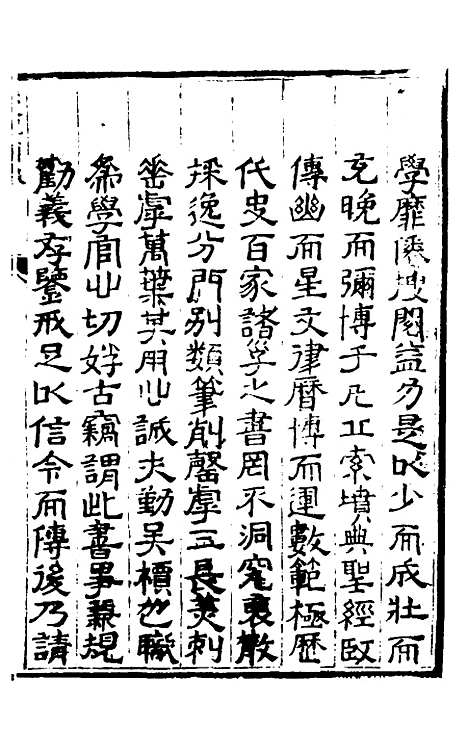 學靡懈搜閱益力是以少而成壯而
充晚而彌博于凡丘索墳典聖經臤
傳幽而星文律曆博而運數範極歷
代史百家諸學之書罔不洞究裒散
採逸分門別類筆削罄虖三長羙刺
虖萬葉其用心誠夫勤矣楨也職
叅學官心切好古竊謂此書事嚴規
勸義存鑒戒足以信今而傳後乃請